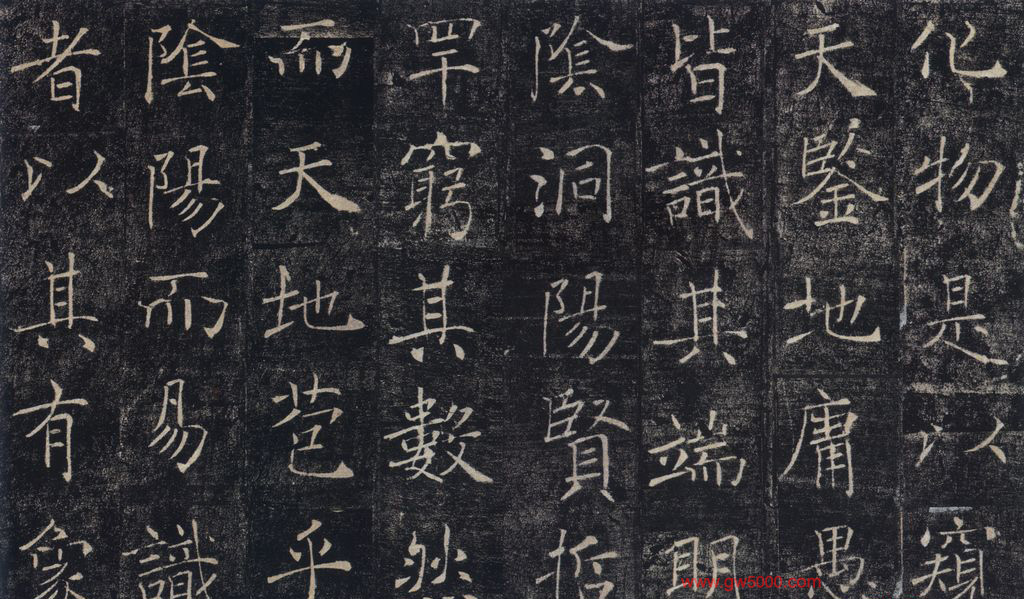 化物是以窺
天鑒地庸愚
皆識其端明
陰洞陽賢哲
罕窮其數然
而天地苞乎
陰陽而易識
者以其有象
www.gw5000.com